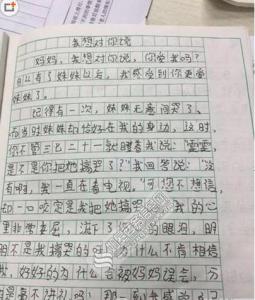 我想对你说
妈妈，我想对你说，你爱我吗？
自从有了妹妹以后，我感受到你更爱
妹妹了。
记得有一次，妹妹无意间哭了，
而当时妹妹的恰好在我的身边，这时，
你不管三七二十一就瞪着我说：“雯雯，
是不是你把她搞哭了？”我回答说：“没
有啊，我一直在看电视。”可您不想信，
却一口咬定是我把她搞哭
我的心
里非常难屈，流下了
的眼泪，明
明不是我搞哭的
为什么不肯相信
我，好好的为什么会被妈妈误会，
是毫不讲礼吗？那一
我感